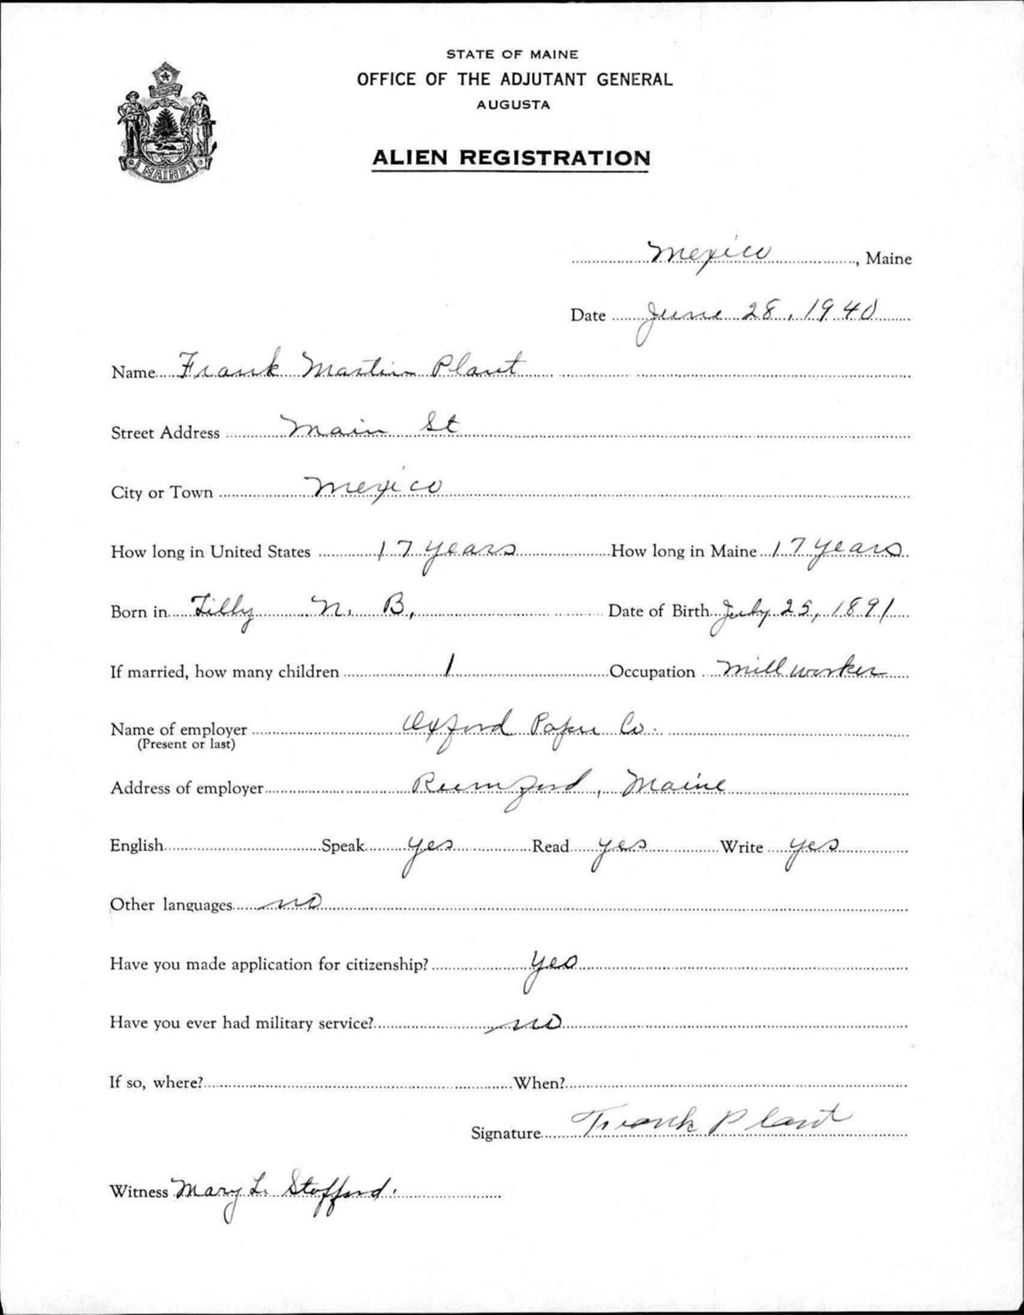 STATE OF MAINE
OFFICE OF THE ADJUTANT GENERAL
AUGUSTA
ALIEN REGISTRATION
MAINE
Mexico, Maine
Date June 28, 1940
Name Frank Martin Plant
Street Address Main St
City or Town Mexico
How long in United States 17 years How long in Maine 17 years
Born in Tilly N. B. Date of Birth July 25, 1891
If married, how many children 1 Occupation Mill worker
Name of employer Oxford Paper Co.
(Present or last)
Address of employer Rumford, Maine
English Speak yes Read yes Write yes
Other languages no
Have you made application for citizenship? yes
Have you ever had military service? no
If so, where? When?
Signature Frank Plant
Witness Mary L. Stofford.